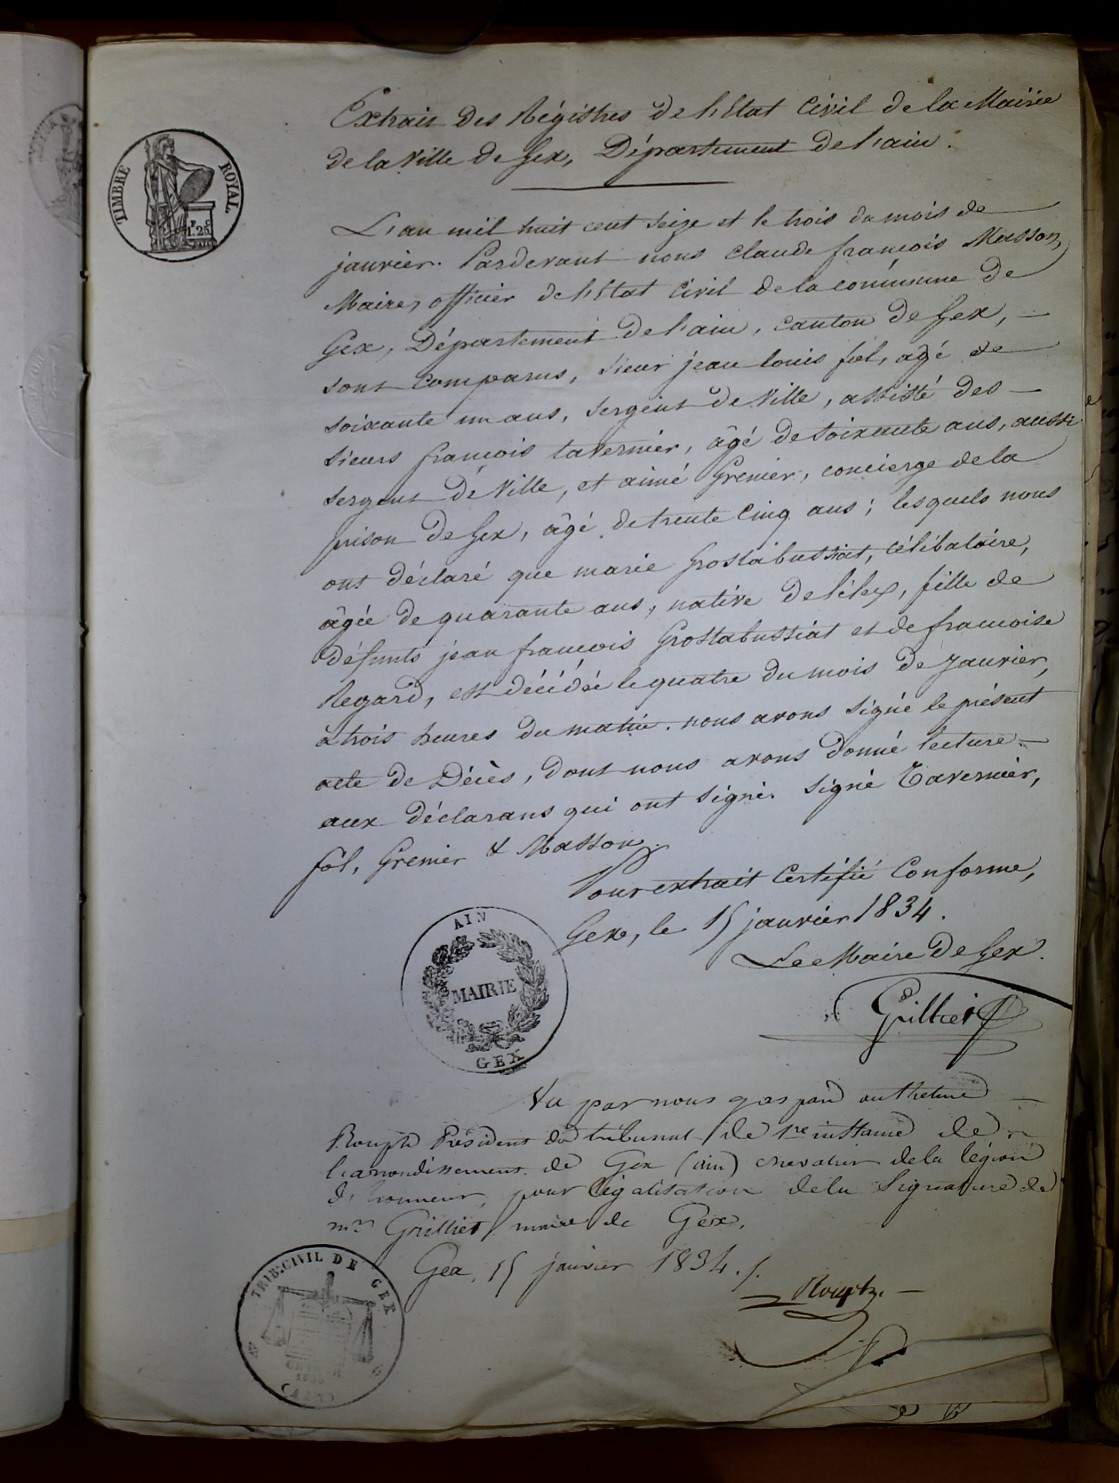 TIMBRE ROYAL
1.F 25.C
Extrait des Régistres de l'état Civil de la Mairie
de la Ville de Gex, Département de l'ain.
L'an mil huit cent seize et le trois du mois de
janvier. Pardevant nous Claude françois Masson,
Maire, officier de l'état Civil de la commune de
Gex, Département de l'ain, canton de Gex,
sont comparus, sieur jean louis fol, agé de
soixante un ans, sergent de Ville, assisté des
sieurs françois tavernier, âgé de soixante ans, aussi
sergent de Ville, et aimé Grenier, concierge de la
prison de Gex, âgé de trente cinq ans; lesquels nous
ont déclaré que marie Grostabussiat, célibataire,
âgée de quarante ans, native de lélex, fille de
défunts jean françois Grostabussiat et de francoise
Regard, est décédée le quatre du mois de janvier,
à trois heures du matin. nous avons signé le présent
acte de Décès, dont nous avons donné lecture
aux déclarans qui ont signé. signé Tavernier,
fol, Grenier & Masson.
Pour extrait Certifié Conforme,
Gex, le 15 janvier 1834.
Le Maire de Gex.
Grilliet
AIN
MAIRIE
GEX
Vu par nous gaspard
Rouph Président du tribunal de 1re instance de
l'arrondissement de Gex (ain) chevalier de la légion
d'honneur, pour légalisation de la signature de
mr Grilliet maire de Gex.
Gex, 15 janvier 1834.
Rouph
TRIB. CIVIL DE GEX